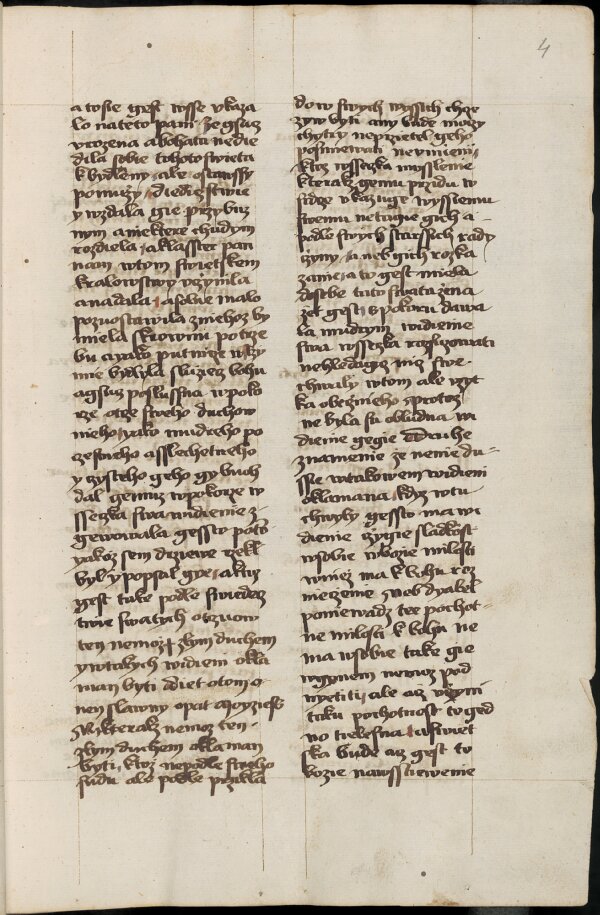 4
a toste gest wysse vkaza
lo na teto pani ze gsuc
vrozena a bohata nedie
dila sobie tohoto swieta
k bydleny ale opustiwssy
po muzy diedicstwie
y wzdala gie przybuz
nym a niektere chudym
rozdiela a klasster pan
nam w tom swietskem
kralowstwy vczynila
a nadala a sobie malo
pozuostawila z niehoz by
miela skrowmu potrze
bu a yako putnicze w zy
wie bydlila sluziec bohu
a gsuc poslussna w poko
rze otcze sweho duchow
nieho yako mudreho po
czestneho a sslechetneho
y czysteho geho gy buoh
dal gemuz w pokorze w
sseczka swa widienie z
gewowala gessto potom
yakoz sem drzewe rzekl
byl y popsal gye a ktoz
gest take podle swiedecz
twie swatych otczuow
ten nemoz zlym duchem
y w takych widieni okla
man byti diet o tom o
nen slawny opat Moyziess
Nykterakz nemoz ten
zlym duchem oklaman
byti ktoz nepodle sweho
sudu ale podle przikla
dow swych wyssich chce
zyw byti any bude moczy
chytry neprzietel geho
posmiewati neumieni
ktoz wsseczka myslenie
kterakz gemu przidu w
srdcze vkazuge wyssiemu
swemu netagie gich a
podle swych starssich rady
czyny a neb gich rozka
zanie a to gest miela
dosebe tato swata zena
ze gest s pokoru dawa
la mudrym widienie
swa wsseczka rozsuzowati
nehledagicz niz swe
chwaly w tom ale vzyt
ka obecznieho a protoz
ne byla su obludna wi
dienie gegie Druhe
znamenie ze nenie du
sse w takowem widieni
oklamana kdyz w tu
chwyly gessto ma wi
dienie czygie sladkost
w sobie w bozie milosti
w niez ma k bohu roz
niezenie neb dyabel
poniewadz tee pochot
ne milosti k bohu ne
ma w sobie take gie
w gynem nemoz pod
nyetiti ale acz vczyni
taku pochotnost to ged
no tielesna a swiet
ska bude acz gest to
bozie nawsstiewenie